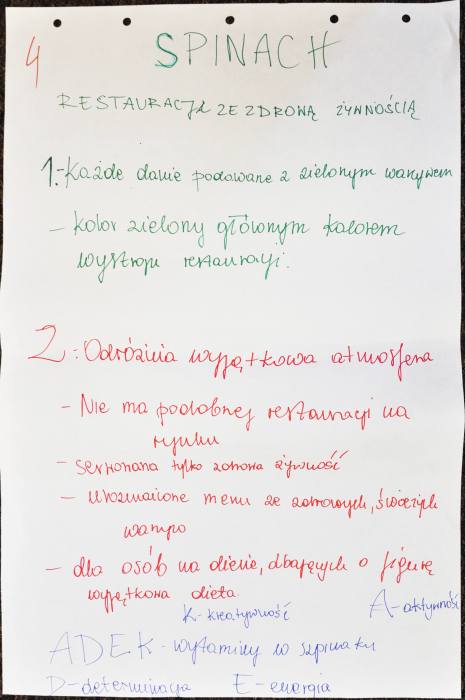 4
SPINACH
RESTAURACJA ZE ZDROWĄ ŻYWNOŚCIĄ
1.- Każde danie podawane z zielonym warzywem
- kolor zielony głównym kolorem
wystroju restauracji.
2: Odróżnia wyjątkowa atmosfera
- Nie ma podobnej restauracji na
rynku
- serwowana tylko zdrowa żywność
- urozmaicone menu ze zdrowych, świeżych
warzyw
- dla osób na diecie, dbających o figurę
wyjątkowa dieta.
K- kreatywność A- aktywność
ADEK - wytaminy w szpinaku
D-determinacja E-energia